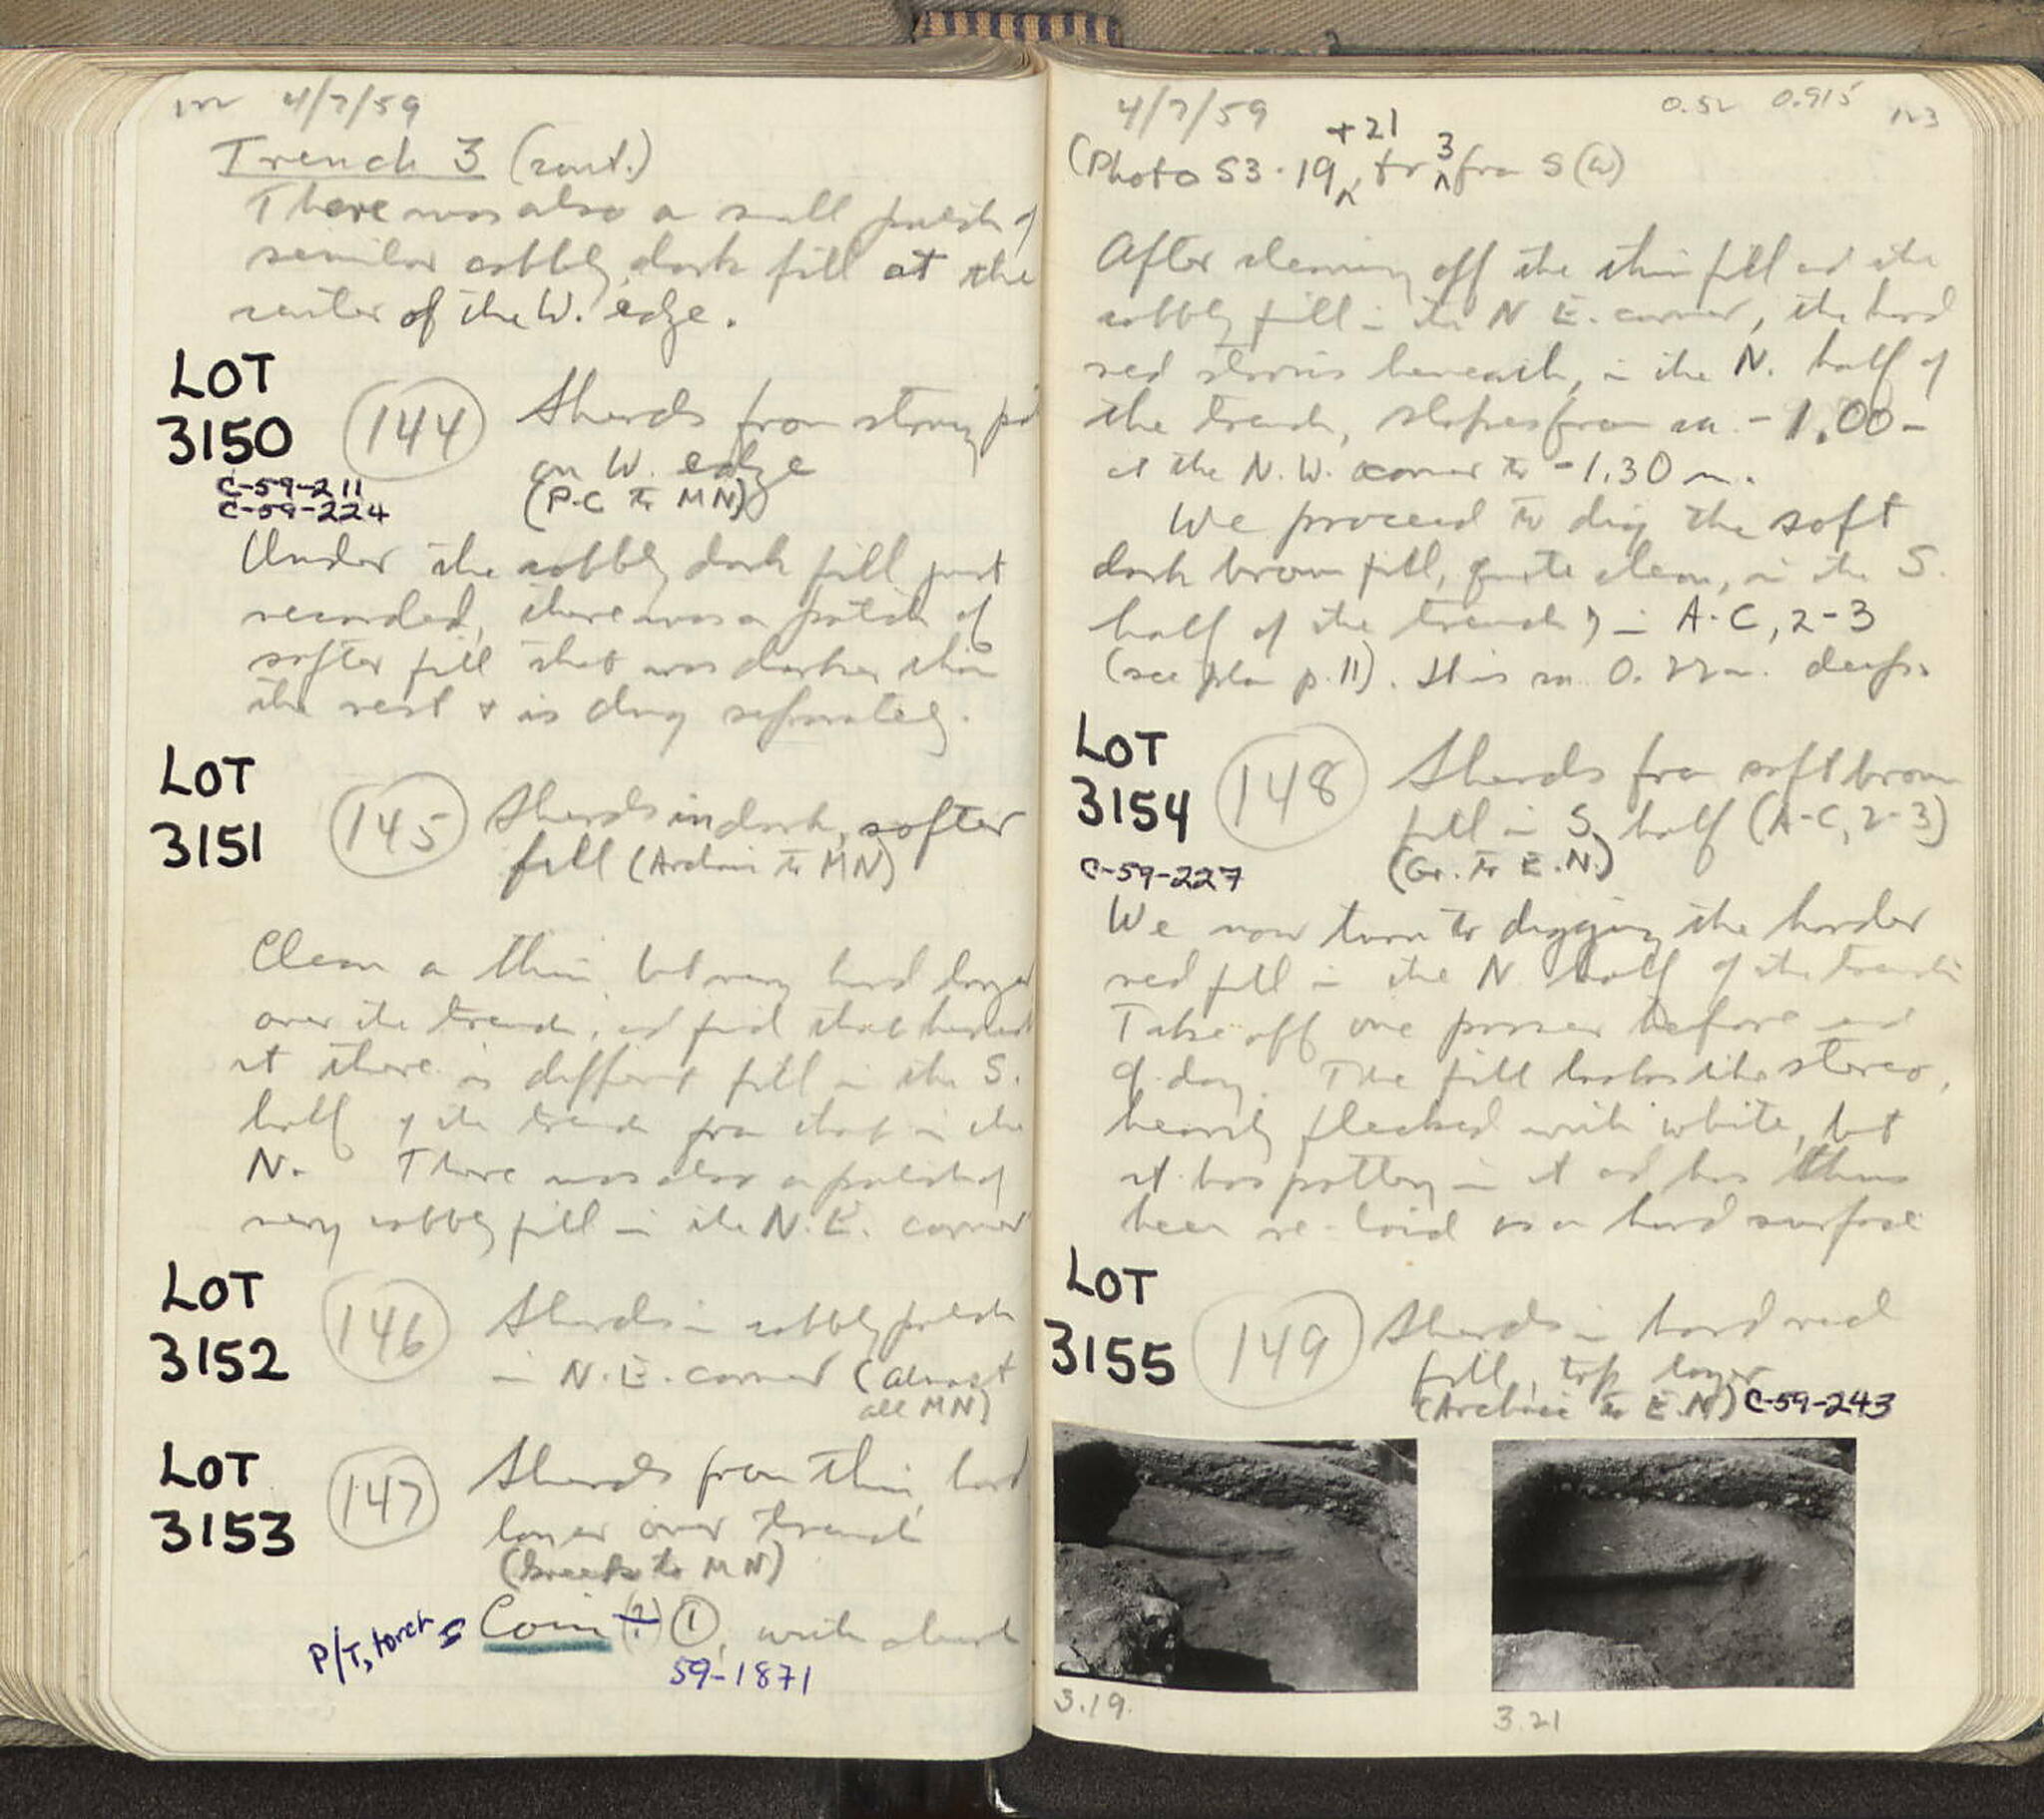 122 4/7/59
Trench 3 (cont.)
There was also a small patch of
similar cobbly, dark fill at the
center of the W. edge.
LOT
3150
C-59-211
C-59-224
144 Sherds from strong
on W. edge
(P.C to MN)
Under the cobbly dark fill just
recorded, there was a patch of
softer fill that was darker than
the rest & is dug separately.
LOT
3151
145 Sherds in dark, softer
fill (Archaic to MN)
Clean a thin, but very hard layer
over the trench, and find that beneath
it there is different fill in the S.
half of the trench from that in the
N. There was also a patch of
very cobbly fill in the N.E. corner
LOT
3152
146 Sherds in cobbly patch
in N.E. corner (almost
all MN)
LOT
3153
147 Sherds from thin, hard
layer over trench
(Greek to MN)
P/T, torch s Coin (?) 1, with
59-1871
4/7/59 0.52 0.915 123
(Photo S3.19 +21 tr 3 from S (W)
After cleaning off the thin fill and the
cobbly fill in the N E. corner, the hard
red stereo beneath, in the N. half of
the trench, slopes from ca. -1.00-
at the N.W. corner to -1.30 m.
We proceed to dig the soft
dark brown fill, quite clean, in the S.
half of the trench, in A-C, 2-3
(see plan p. 11). It is ca. 0.22 m. deep.
LOT
3154
C-59-227
148 Sherds from soft brown
fill in S. half (A-C, 2-3)
(Gr. to E.N.)
We now turn to digging the harder
red fill in the N. half of the trench
Take off one pass before end
of day. The fill looks like stereo,
heavily flecked with white, but
it has pottery in it and has thus
been re-laid as a hard surface
LOT
3155
149 Sherds in hard red
fill, top layer
(Archaic to E.N.) C-59-243
3.19.
3.21